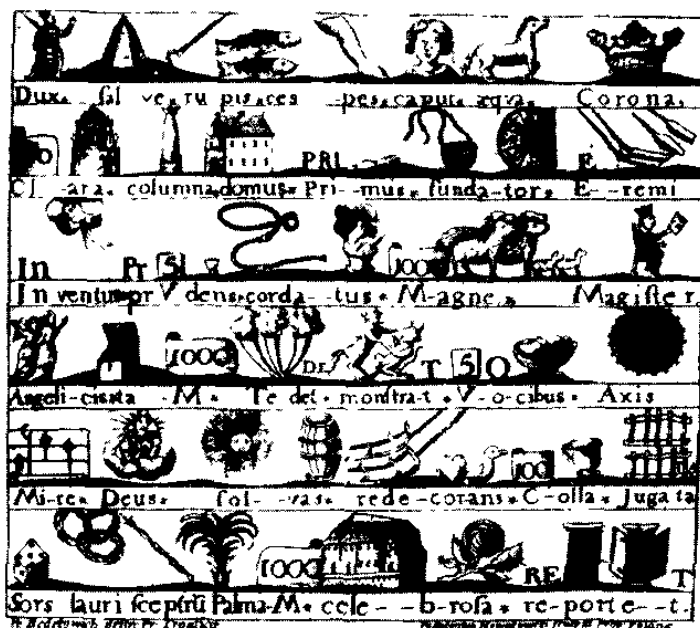 Dux. sal ve-ru pis-ces -pes. caput. æqva. Corona.
PRI. E
Cl -ara. columna domus. Pri--mus. funda-tor. E--remi
In Pr 5 100
In ventus pr V dens. corda--tus. M-agne. Magister
1000 De T 5 O
Angeli-ci -M. Te del. monstra-t. V-o-cibus. Axis
100
Mi-re. Deus. sol--vas. rede-corans. C-olla. Jugata
1000 RE T
Sors lauri sceptrũ Palma-M. cele--b-rosa. re-porte--t.